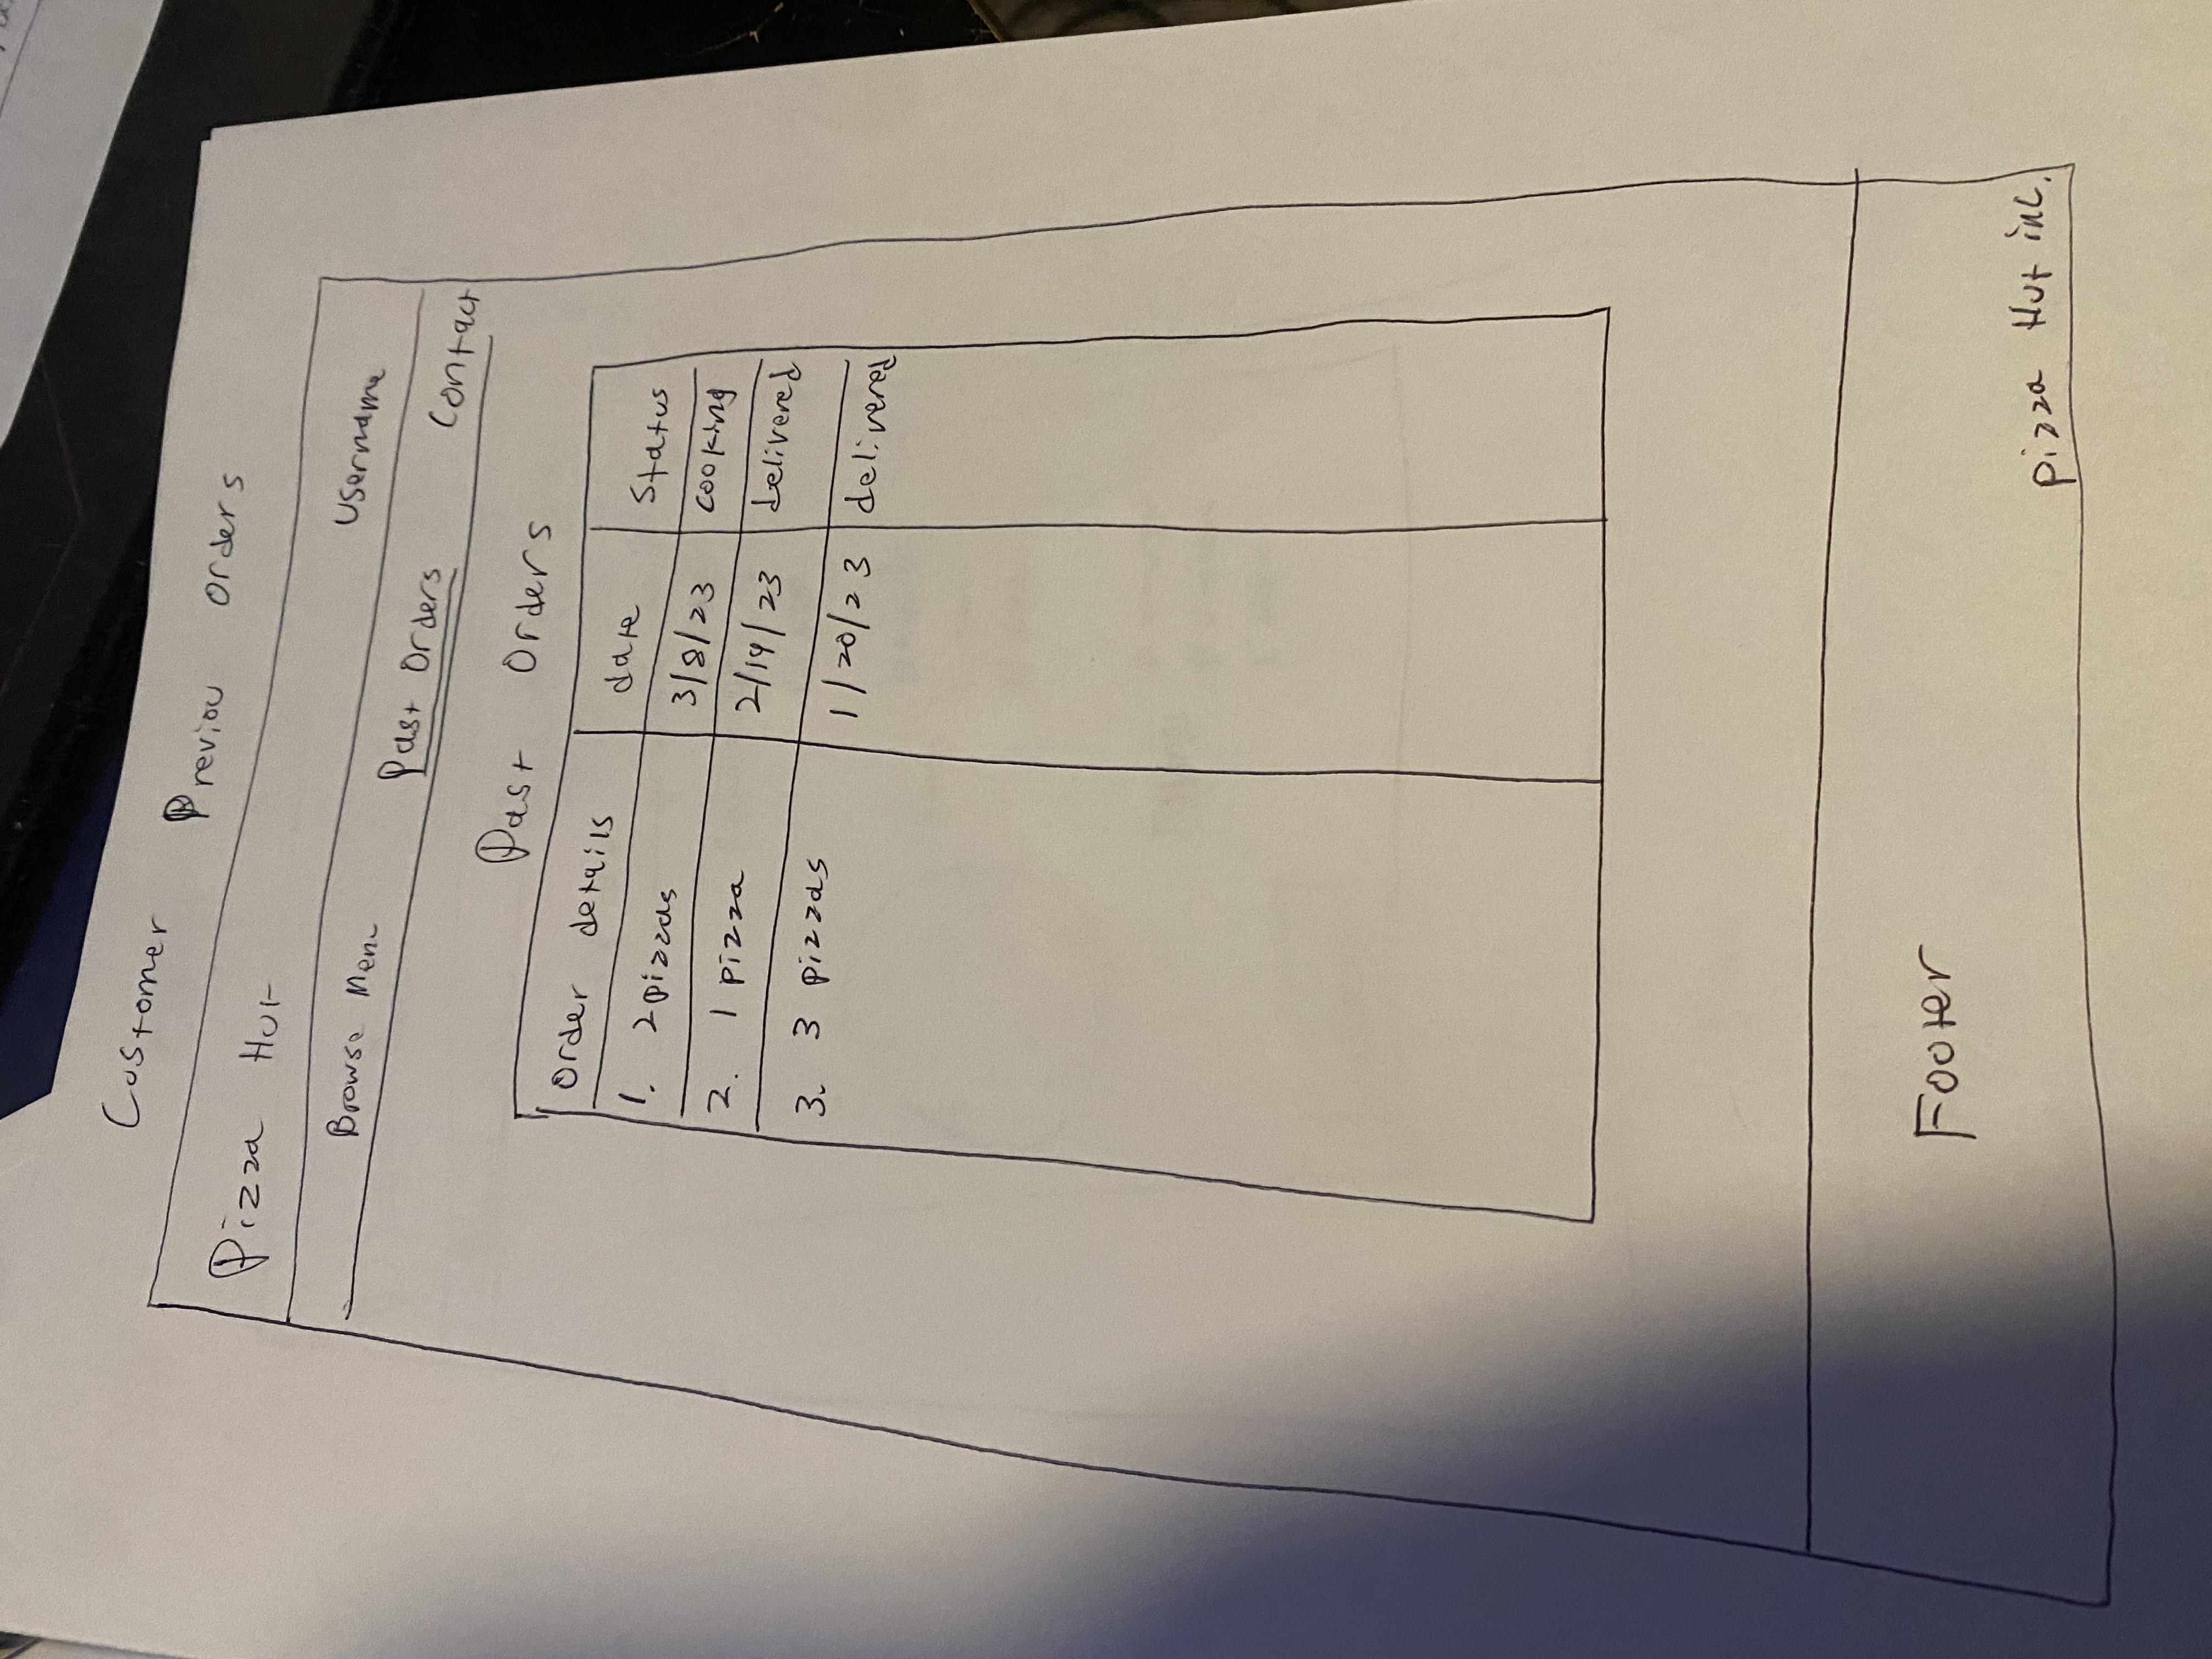 Customer Previou Orders
Pizza Hut
Username
Browse Menu Past Orders Contact
Past Orders
Order details date Status
1. 2 pizzas 3/8/23 cooking
2. 1 pizza 2/14/23 delivered
3. 3 pizzas 1/20/23 delivered
Footer
pizza Hut inc.